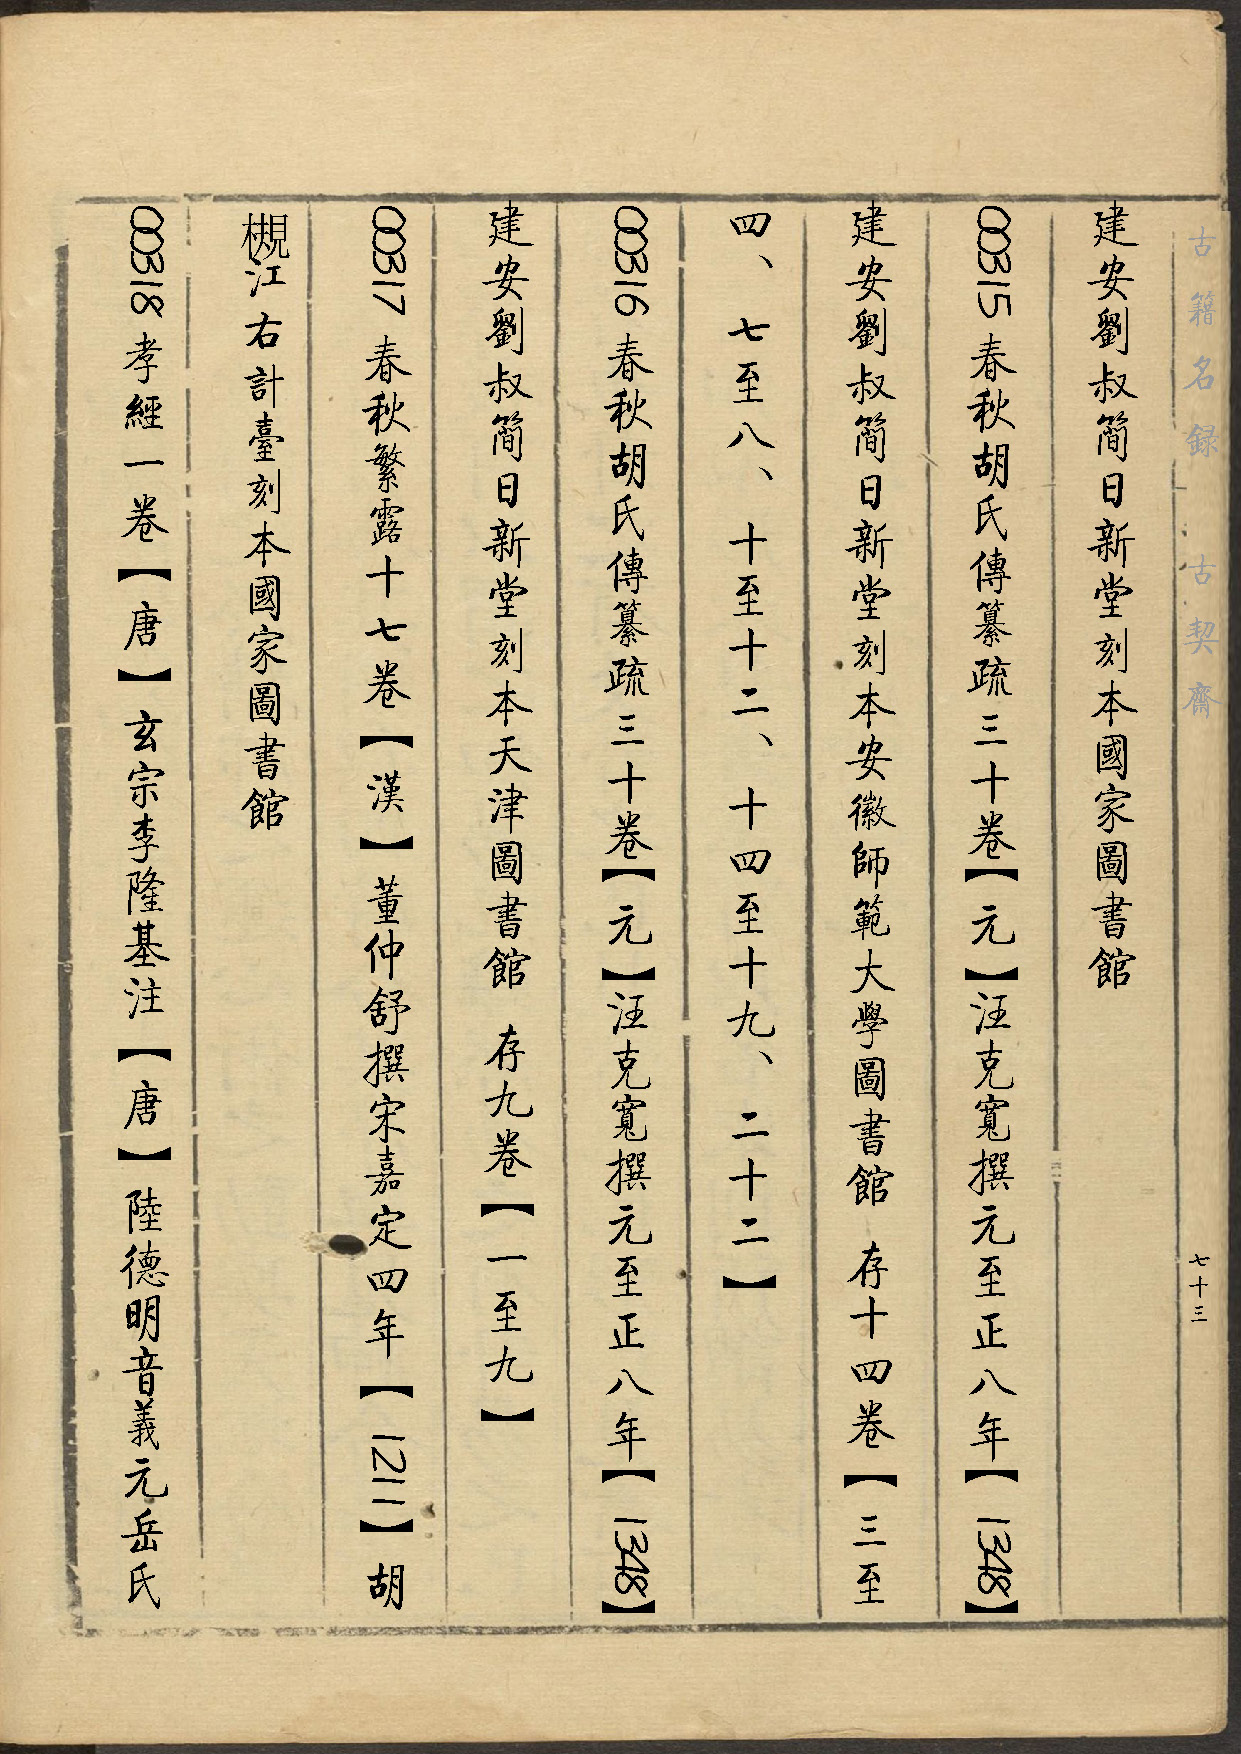 古籍名録 古契齋
七十三
建安劉叔簡日新堂刻本國家圖書館
00315 春秋胡氏傳纂疏三十卷【元】汪克寬撰元至正八年【1348】
建安劉叔簡日新堂刻本安徽師範大學圖書館 存十四卷【三至
四、七至八、十至十二、十四至十九、二十二】
00316 春秋胡氏傳纂疏三十卷【元】汪克寬撰元至正八年【1348】
建安劉叔簡日新堂刻本天津圖書館 存九卷【一至九】
00317 春秋繁露十七卷【漢】董仲舒撰宋嘉定四年【1211】胡
槻江右計臺刻本國家圖書館
00318 孝經一卷【唐】玄宗李隆基注【唐】陸德明音義元岳氏